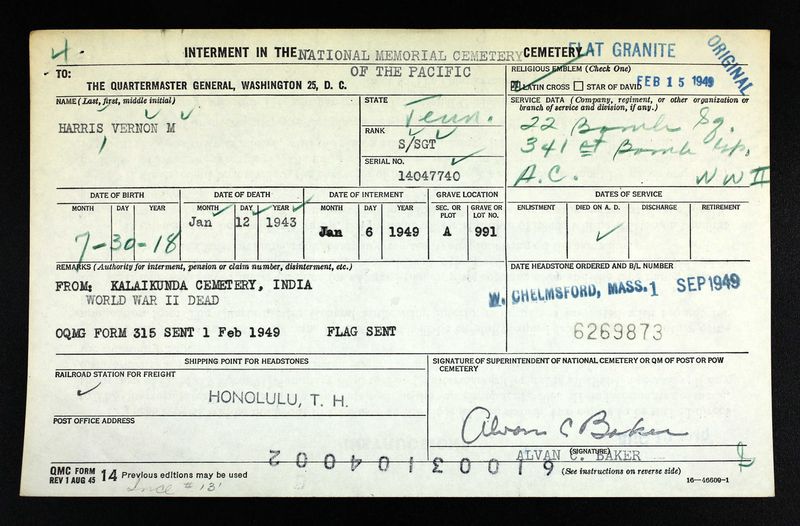 4.
INTERMENT IN THE NATIONAL MEMORIAL CEMETERY CEMETERY FLAT GRANITE
OF THE PACIFIC
ORIGINAL
TO:
THE QUARTERMASTER GENERAL, WASHINGTON 25, D. C.
RELIGIOUS EMBLEM (Check One)
LATIN CROSS STAR OF DAVID FEB 15 1949
NAME (Last, first, middle initial)
HARRIS VERNON M
STATE
Tenn.
RANK
S/SGT
SERIAL NO.
14047740
SERVICE DATA (Company, regiment, or other organization or branch of service and division, if any.)
22 Bomb Sq.
341 st Bomb Gp.
A.C. WW II
DATE OF BIRTH
MONTH DAY YEAR
7-30-18
DATE OF DEATH
MONTH DAY YEAR
Jan 12 1943
DATE OF INTERMENT
MONTH DAY YEAR
Jan 6 1949
GRAVE LOCATION
SEC. OR PLOT GRAVE OR LOT NO.
A 991
DATES OF SERVICE
ENLISTMENT DIED ON A. D. DISCHARGE RETIREMENT
REMARKS (Authority for interment, pension or claim number, disinterment, etc.)
FROM: KALAIKUNDA CEMETERY, INDIA
WORLD WAR II DEAD
OQMG FORM 315 SENT 1 Feb 1949 FLAG SENT
DATE HEADSTONE ORDERED AND B/L NUMBER
W. CHELMSFORD, MASS. 1 SEP 1949
6269873
SHIPPING POINT FOR HEADSTONES
RAILROAD STATION FOR FREIGHT
HONOLULU, T. H.
POST OFFICE ADDRESS
SIGNATURE OF SUPERINTENDENT OF NATIONAL CEMETERY OR QM OF POST OR POW CEMETERY
Alvan C Baker
(SIGNATURE)
ALVAN C. BAKER
610003104002
(See instructions on reverse side)
QMC FORM
REV 1 AUG 45 14 Previous editions may be used
16—46609-1